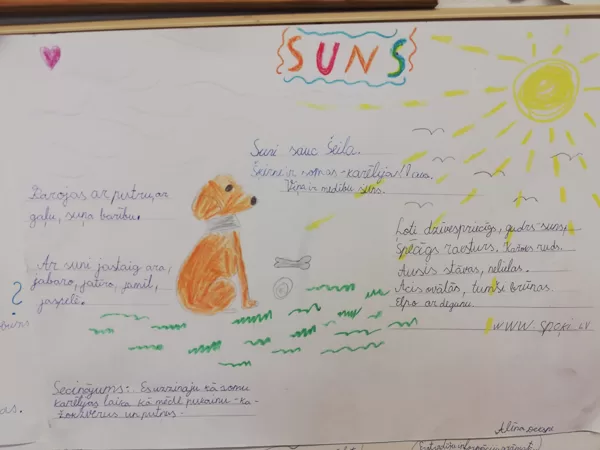 SUNS
Suni sauc Šeila.
Šķirne ir somas-karēlijas laica.
Viņa ir medību suns.
Barojas ar putru, ar
gaļu, suņa barību.
Ar suni jāstaig ara,
jābaro, jātīro, jāmīl,
jāspēlē.
Ļoti dzīvespriecīgs, gudrs suns,
Spēcīgs raksturs. Kažoks ruds.
Ausis stāvas, nelielas.
Acis ovālās, tumše brūnas.
Elpo ar degunu.
www.spoki.lv
?
Secinājums: Es uzzināju kā somu
karēlijas laika kā mēdī pūkaino ka-
žokzvērus un putnus.
as.
Alīna